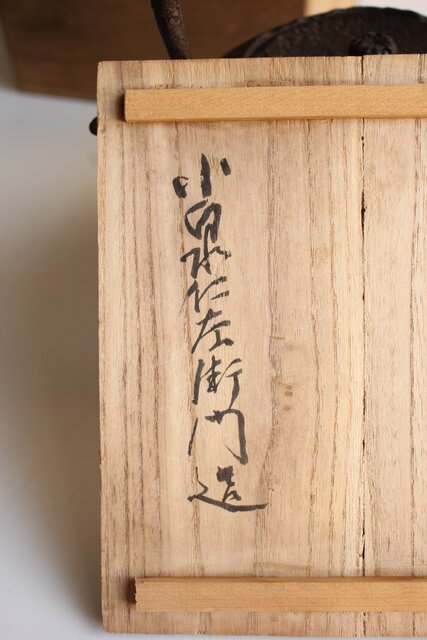 小泉仁左衛門造